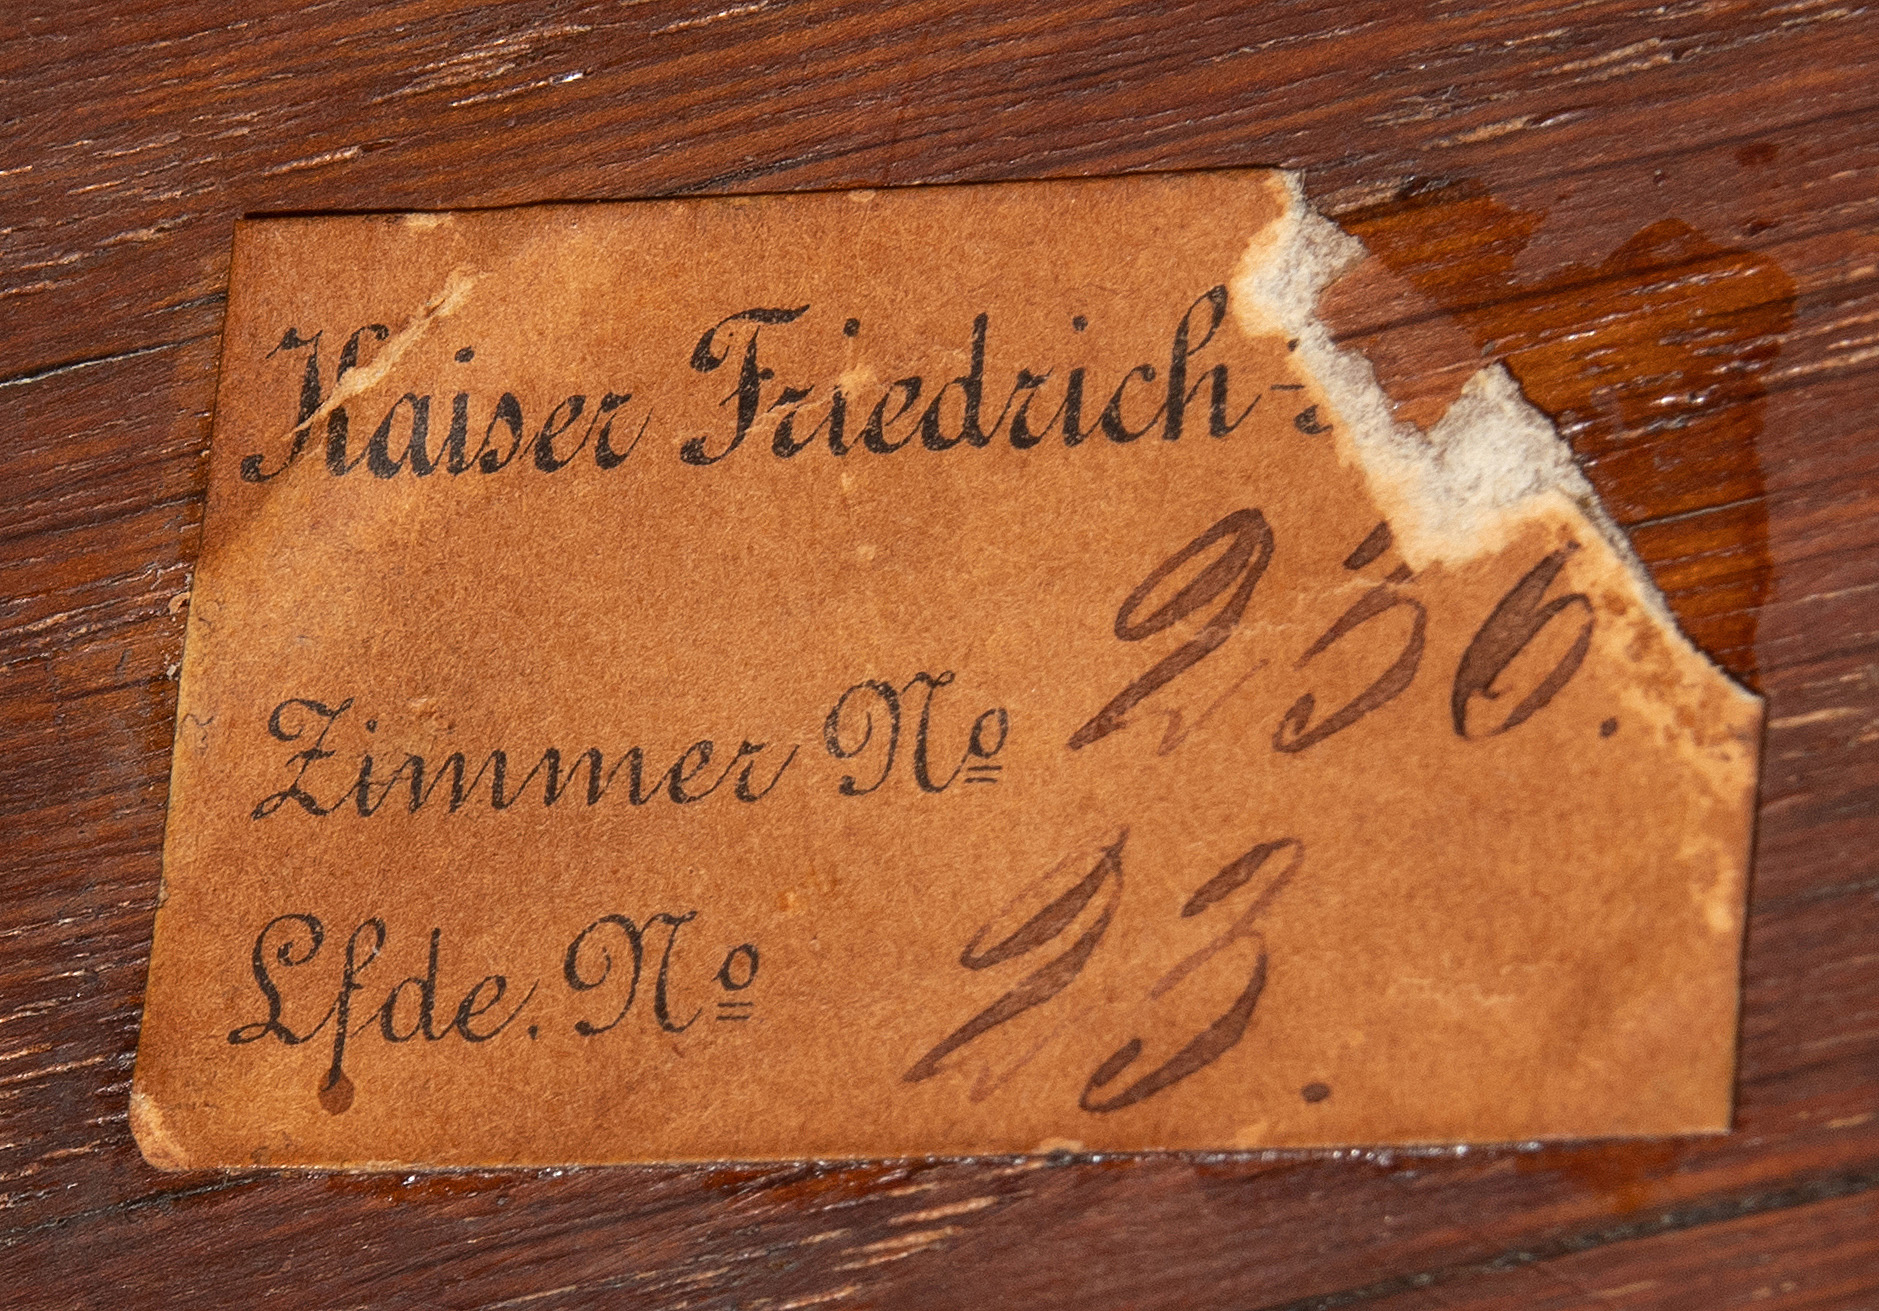 Kaiser Friedrich-
Zimmer Nº 256.
Lfde. Nº 23.